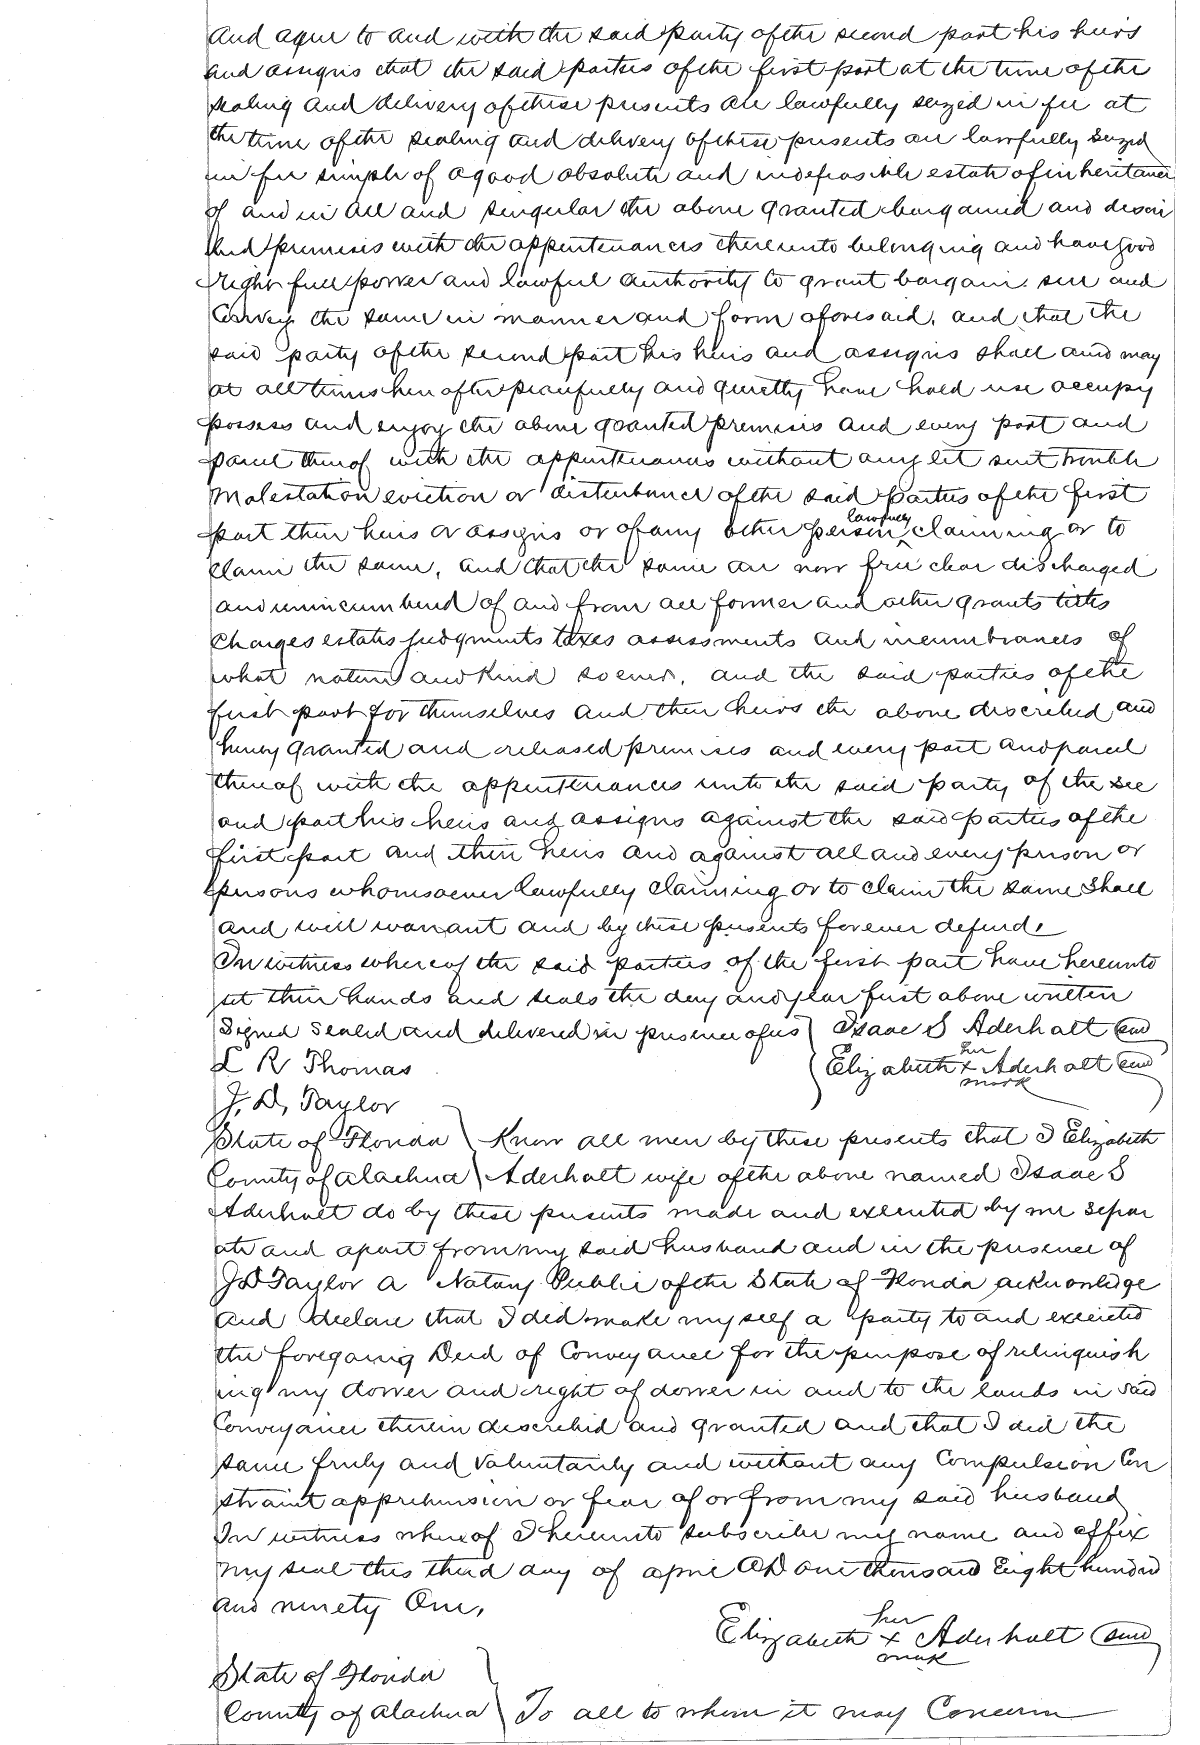 and agree to and with the said party of the second part his heirs
and assigns that the said parties of the first part at the time of the
sealing and delivery of these presents are lawfully seized in fee at
the time of the sealing and delivery of these presents are lawfully seized
in fee simple of a good absolute and indefeasible estate of inheritance
of and in all and singular the above granted bargained and descri
bed premises with the appurtenances thereunto belonging and have good
right full power and lawful authority to grant bargain sell and
Convey the same in manner and form aforesaid, and that the
said party of the second part his heirs and assigns shall and may
at all times hereafter peacefully and quietly have hold use occupy
possess and enjoy the above granted premises and every part and
parcel thereof with the appurtenances without any let suit trouble
Molestation eviction or disturbance of the said parties of the first
part their heirs or assigns or of any other person lawfully claiming or to
claim the same, and that the same are now free clear discharged
and unincumbered of and from all former and other grants titles
Charges estates judgments taxes assessments and incumbrances of
what nature and Kind soever, and the said parties of the
first part for themselves and their heirs the above discribed and
hereby granted and released premises and every part and parcel
thereof with the appurtenances unto the said party of the sec
ond part his heirs and assigns against the said parties of the
first part and their heirs and against all and every person or
persons whomsoever lawfully claiming or to claim the same Shall
and will warrant and by these presents forever defend.
In witness whereof the said parties of the first part have hereunto
set their hands and seals the day and year first above written
Signed Sealed and delivered in presence of us } Isaac S Aderholt seal
L R Thomas } Elizabeth her x mark Aderholt seal
J. D. Taylor
State of Florida } Know all men by these presents that I Elizabeth
County of Alachua } Aderholt wife of the above named Isaac S
Aderholt do by these presents made and executed by me separ
ate and apart from my said husband and in the presence of
J D Taylor a Notary Public of the State of Florida acknowledge
and declare that I did make myself a party to and executed
the foregoing Deed of Conveyance for the purpose of relinquish
ing my dower and right of dower in and to the lands in said
Conveyance therein discribed and granted and that I did the
same freely and voluntarily and without any Compulsion Con
straint apprehension or fear of or from my said husband
In witness whereof I hereunto subscribe my name and affix
my seal this third day of april AD one thousand Eight hundred
and ninety One,
Elizabeth her x mark Aderholt seal
State of Florida }
County of Alachua } To all to whom it may Concern